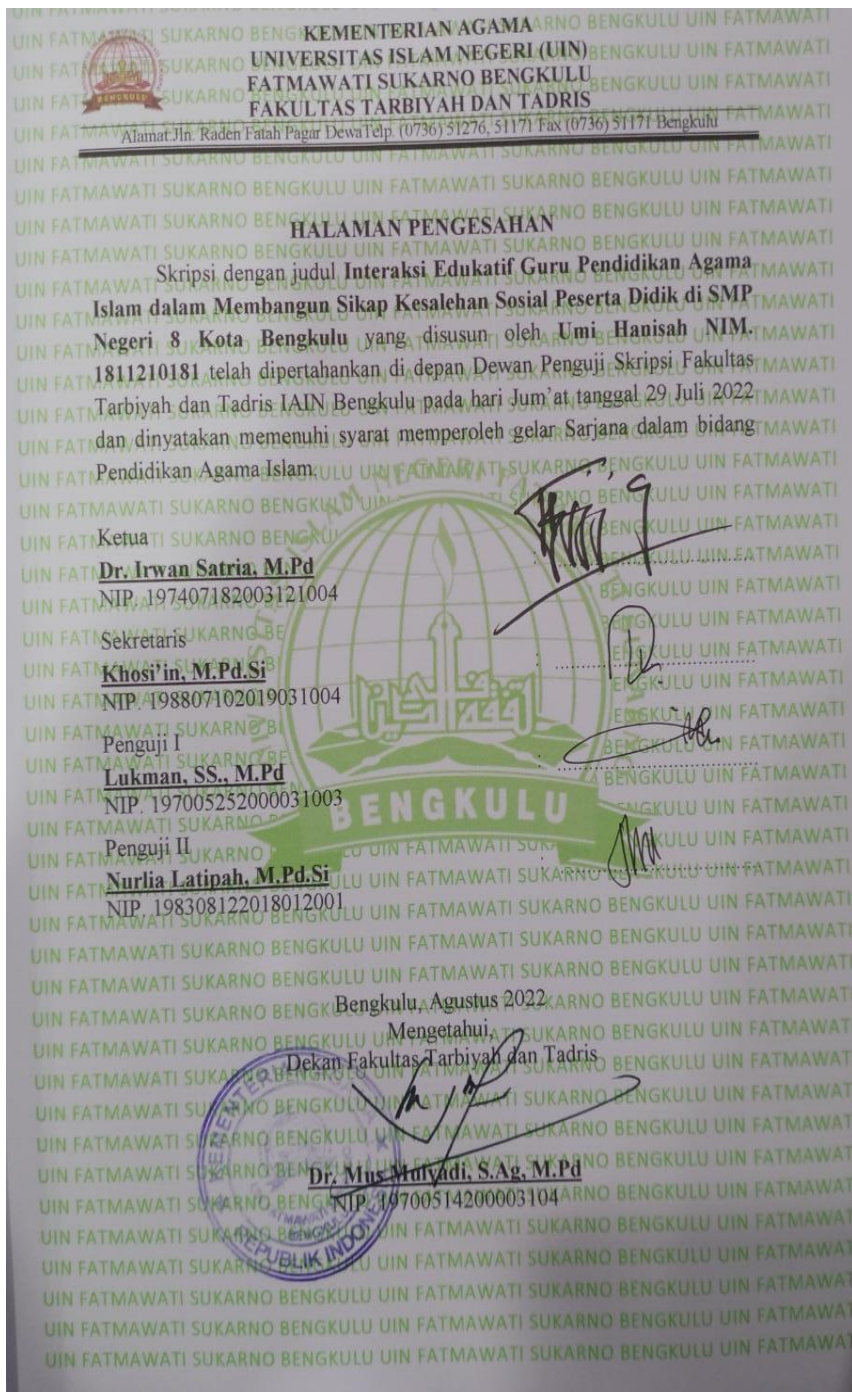 KEMENTERIAN AGAMA
UNIVERSITAS ISLAM NEGERI (UIN)
FATMAWATI SUKARNO BENGKULU
FAKULTAS TARBIYAH DAN TADRIS
Alamat:Jln. Raden Fatah Pagar DewaTelp. (0736) 51276, 51171 Fax (0736) 51171 Bengkulu
HALAMAN PENGESAHAN
Skripsi dengan judul Interaksi Edukatif Guru Pendidikan Agama
Islam dalam Membangun Sikap Kesalehan Sosial Peserta Didik di SMP
Negeri 8 Kota Bengkulu yang disusun oleh Umi Hanisah NIM.
1811210181 telah dipertahankan di depan Dewan Penguji Skripsi Fakultas
Tarbiyah dan Tadris IAIN Bengkulu pada hari Jum'at tanggal 29 Juli 2022
dan dinyatakan memenuhi syarat memperoleh gelar Sarjana dalam bidang
Pendidikan Agama Islam.
Ketua
Dr. Irwan Satria, M.Pd
NIP. 197407182003121004
Sekretaris
Khosi'in, M.Pd.Si
NIP. 198807102019031004
Penguji I
Lukman, SS., M.Pd
NIP. 197005252000031003
Penguji II
Nurlia Latipah, M.Pd.Si
NIP. 198308122018012001
BENGKULU
Bengkulu, Agustus 2022
Mengetahui,
Dekan Fakultas Tarbiyah dan Tadris
Dr. Mus Mulyadi, S.Ag, M.Pd
NIP. 19700514200003104
REPUBLIK INDONESIA